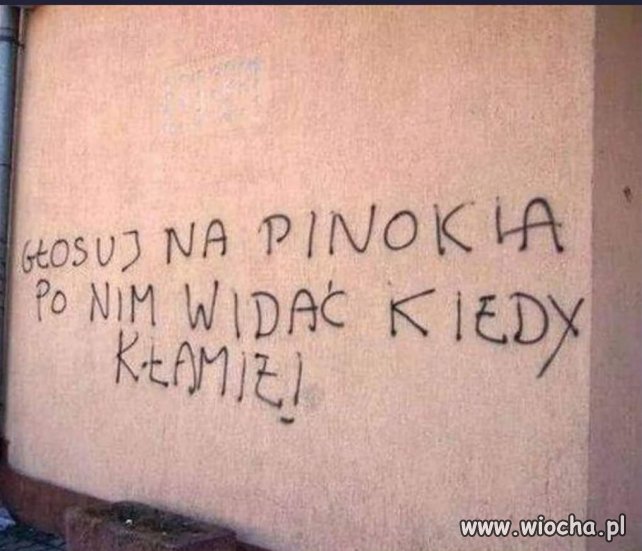 GŁOSUJ NA PINOKIA
PO NIM WIDAĆ KIEDY
KŁAMIE!
www.wiocha.pl